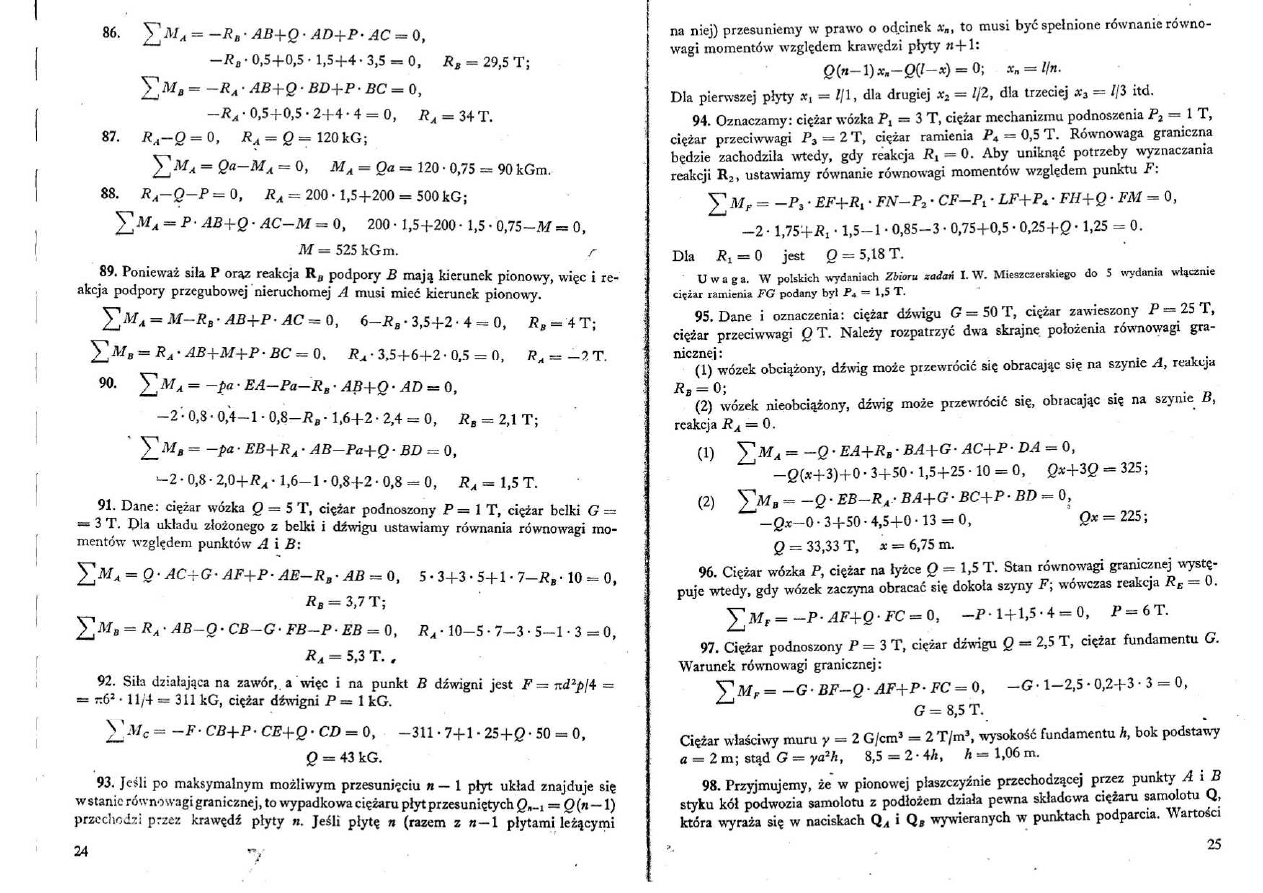 86. ∑M_A = −R_B · AB+Q · AD+P · AC = 0,
−R_B · 0,5+0,5 · 1,5+4 · 3,5 = 0, R_B = 29,5 T;
∑M_B = −R_A · AB+Q · BD+P · BC = 0,
−R_A · 0,5+0,5 · 2+4 · 4 = 0, R_A = 34 T.
87. R_A−Q = 0, R_A = Q = 120 kG;
∑M_A = Qa−M_A = 0, M_A = Qa = 120 · 0,75 = 90 kGm.
88. R_A−Q−P = 0, R_A = 200 · 1,5+200 = 500 kG;
∑M_A = P · AB+Q · AC−M = 0, 200 · 1,5+200 · 1,5 · 0,75−M = 0,
M = 525 kGm.
89. Ponieważ siła P oraz reakcja R_B podpory B mają kierunek pionowy, więc i re-
akcja podpory przegubowej nieruchomej A musi mieć kierunek pionowy.
∑M_A = M−R_B · AB+P · AC = 0, 6−R_B · 3,5+2 · 4 = 0, R_B = 4 T;
∑M_B = R_A · AB+M+P · BC = 0, R_A · 3,5+6+2 · 0,5 = 0, R_A = −2 T.
90. ∑M_A = −pa · EA−Pa−R_B · AB+Q · AD = 0,
−2 · 0,8 · 0,4−1 · 0,8−R_B · 1,6+2 · 2,4 = 0, R_B = 2,1 T;
∑M_B = −pa · EB+R_A · AB−Pa+Q · BD = 0,
−2 · 0,8 · 2,0+R_A · 1,6−1 · 0,8+2 · 0,8 = 0, R_A = 1,5 T.
91. Dane: ciężar wózka Q = 5 T, ciężar podnoszony P = 1 T, ciężar belki G =
= 3 T. Dla układu złożonego z belki i dźwigu ustawiamy równania równowagi mo-
mentów względem punktów A i B:
∑M_A = Q · AC+G · AF+P · AE−R_B · AB = 0, 5 · 3+3 · 5+1 · 7−R_B · 10 = 0,
R_B = 3,7 T;
∑M_B = R_A · AB−Q · CB−G · FB−P · EB = 0, R_A · 10−5 · 7−3 · 5−1 · 3 = 0,
R_A = 5,3 T.
92. Siła działająca na zawór, a więc i na punkt B dźwigni jest F = πd²p/4 =
= π6² · 11/4 = 311 kG, ciężar dźwigni P = 1 kG.
∑M_C = −F · CB+P · CE+Q · CD = 0, −311 · 7+1 · 25+Q · 50 = 0,
Q = 43 kG.
93. Jeśli po maksymalnym możliwym przesunięciu n − 1 płyt układ znajduje się
w stanie równowagi granicznej, to wypadkowa ciężaru płyt przesuniętych Q_{n−1} = Q(n−1)
przechodzi przez krawędź płyty n. Jeśli płytę n (razem z n−1 płytami leżącymi
24
na niej) przesuniemy w prawo o odcinek x_n, to musi być spełnione równanie równo-
wagi momentów względem krawędzi płyty n+1:
Q(n−1) x_n−Q(l−x) = 0; x_n = l/n.
Dla pierwszej płyty x₁ = l/1, dla drugiej x₂ = l/2, dla trzeciej x₃ = l/3 itd.
94. Oznaczamy: ciężar wózka P₁ = 3 T, ciężar mechanizmu podnoszenia P₂ = 1 T,
ciężar przeciwwagi P₃ = 2 T, ciężar ramienia P₄ = 0,5 T. Równowaga graniczna
będzie zachodziła wtedy, gdy reakcja R₁ = 0. Aby uniknąć potrzeby wyznaczania
reakcji R₂, ustawiamy równanie równowagi momentów względem punktu F:
∑M_F = −P₃ · EF+R₁ · FN−P₂ · CF−P₁ · LF+P₄ · FH+Q · FM = 0,
−2 · 1,75+R₁ · 1,5−1 · 0,85−3 · 0,75+0,5 · 0,25+Q · 1,25 = 0.
Dla R₁ = 0 jest Q = 5,18 T.
Uwaga. W polskich wydaniach Zbioru zadań I. W. Mieszczerskiego do 5 wydania włącznie
ciężar ramienia FG podany był P₄ = 1,5 T.
95. Dane i oznaczenia: ciężar dźwigu G = 50 T, ciężar zawieszony P = 25 T,
ciężar przeciwwagi Q T. Należy rozpatrzyć dwa skrajne położenia równowagi gra-
nicznej:
(1) wózek obciążony, dźwig może przewrócić się obracając się na szynie A, reakcja
R_B = 0;
(2) wózek nieobciążony, dźwig może przewrócić się, obracając się na szynie B,
reakcja R_A = 0.
(1) ∑M_A = −Q · EA+R_B · BA+G · AC+P · DA = 0,
−Q(x+3)+0 · 3+50 · 1,5+25 · 10 = 0, Qx+3Q = 325;
(2) ∑M_B = −Q · EB−R_A · BA+G · BC+P · BD = 0,
−Qx−0 · 3+50 · 4,5+0 · 13 = 0, Qx = 225;
Q = 33,33 T, x = 6,75 m.
96. Ciężar wózka P, ciężar na łyżce Q = 1,5 T. Stan równowagi granicznej wystę-
puje wtedy, gdy wózek zaczyna obracać się dokoła szyny F; wówczas reakcja R_E = 0.
∑M_F = −P · AF+Q · FC = 0, −P · 1+1,5 · 4 = 0, P = 6 T.
97. Ciężar podnoszony P = 3 T, ciężar dźwigu Q = 2,5 T, ciężar fundamentu G.
Warunek równowagi granicznej:
∑M_F = −G · BF−Q · AF+P · FC = 0, −G · 1−2,5 · 0,2+3 · 3 = 0,
G = 8,5 T.
Ciężar właściwy muru γ = 2 G/cm³ = 2 T/m³, wysokość fundamentu h, bok podstawy
a = 2 m; stąd G = γa²h, 8,5 = 2 · 4h, h = 1,06 m.
98. Przyjmujemy, że w pionowej płaszczyźnie przechodzącej przez punkty A i B
styku kół podwozia samolotu z podłożem działa pewna składowa ciężaru samolotu Q,
która wyraża się w naciskach Q_A i Q_B wywieranych w punktach podparcia. Wartości
25